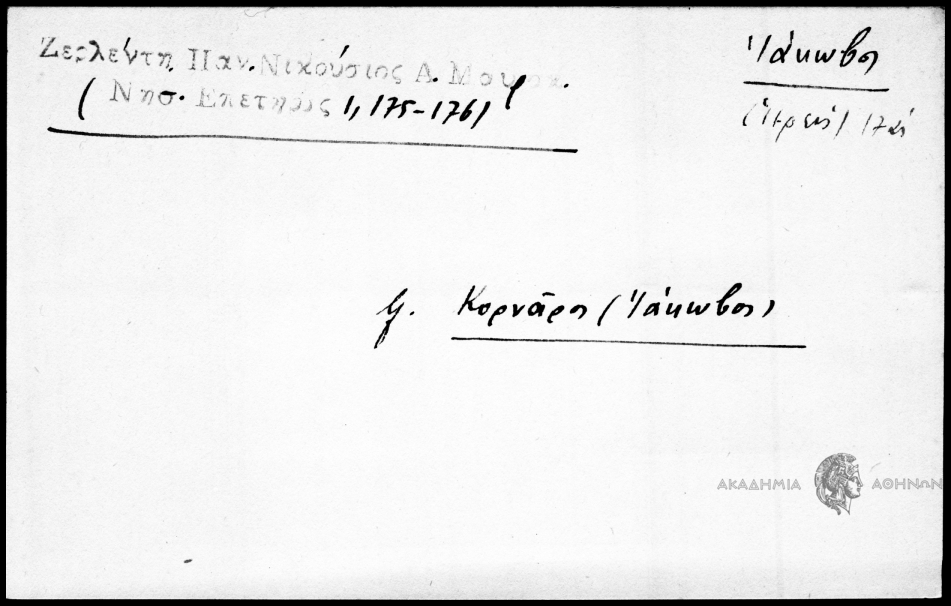 Ζερλέντη Παν. Νικούσιος Α. Μαυρ
(Νησ. Επετηρίς 1, 175-176)
Ἰάκωβος
(ἱερεύς) 17
Κορνάρος (Ἰάκωβος)
ΑΚΑΔΗΜΙΑ ΑΘΗΝΩΝ